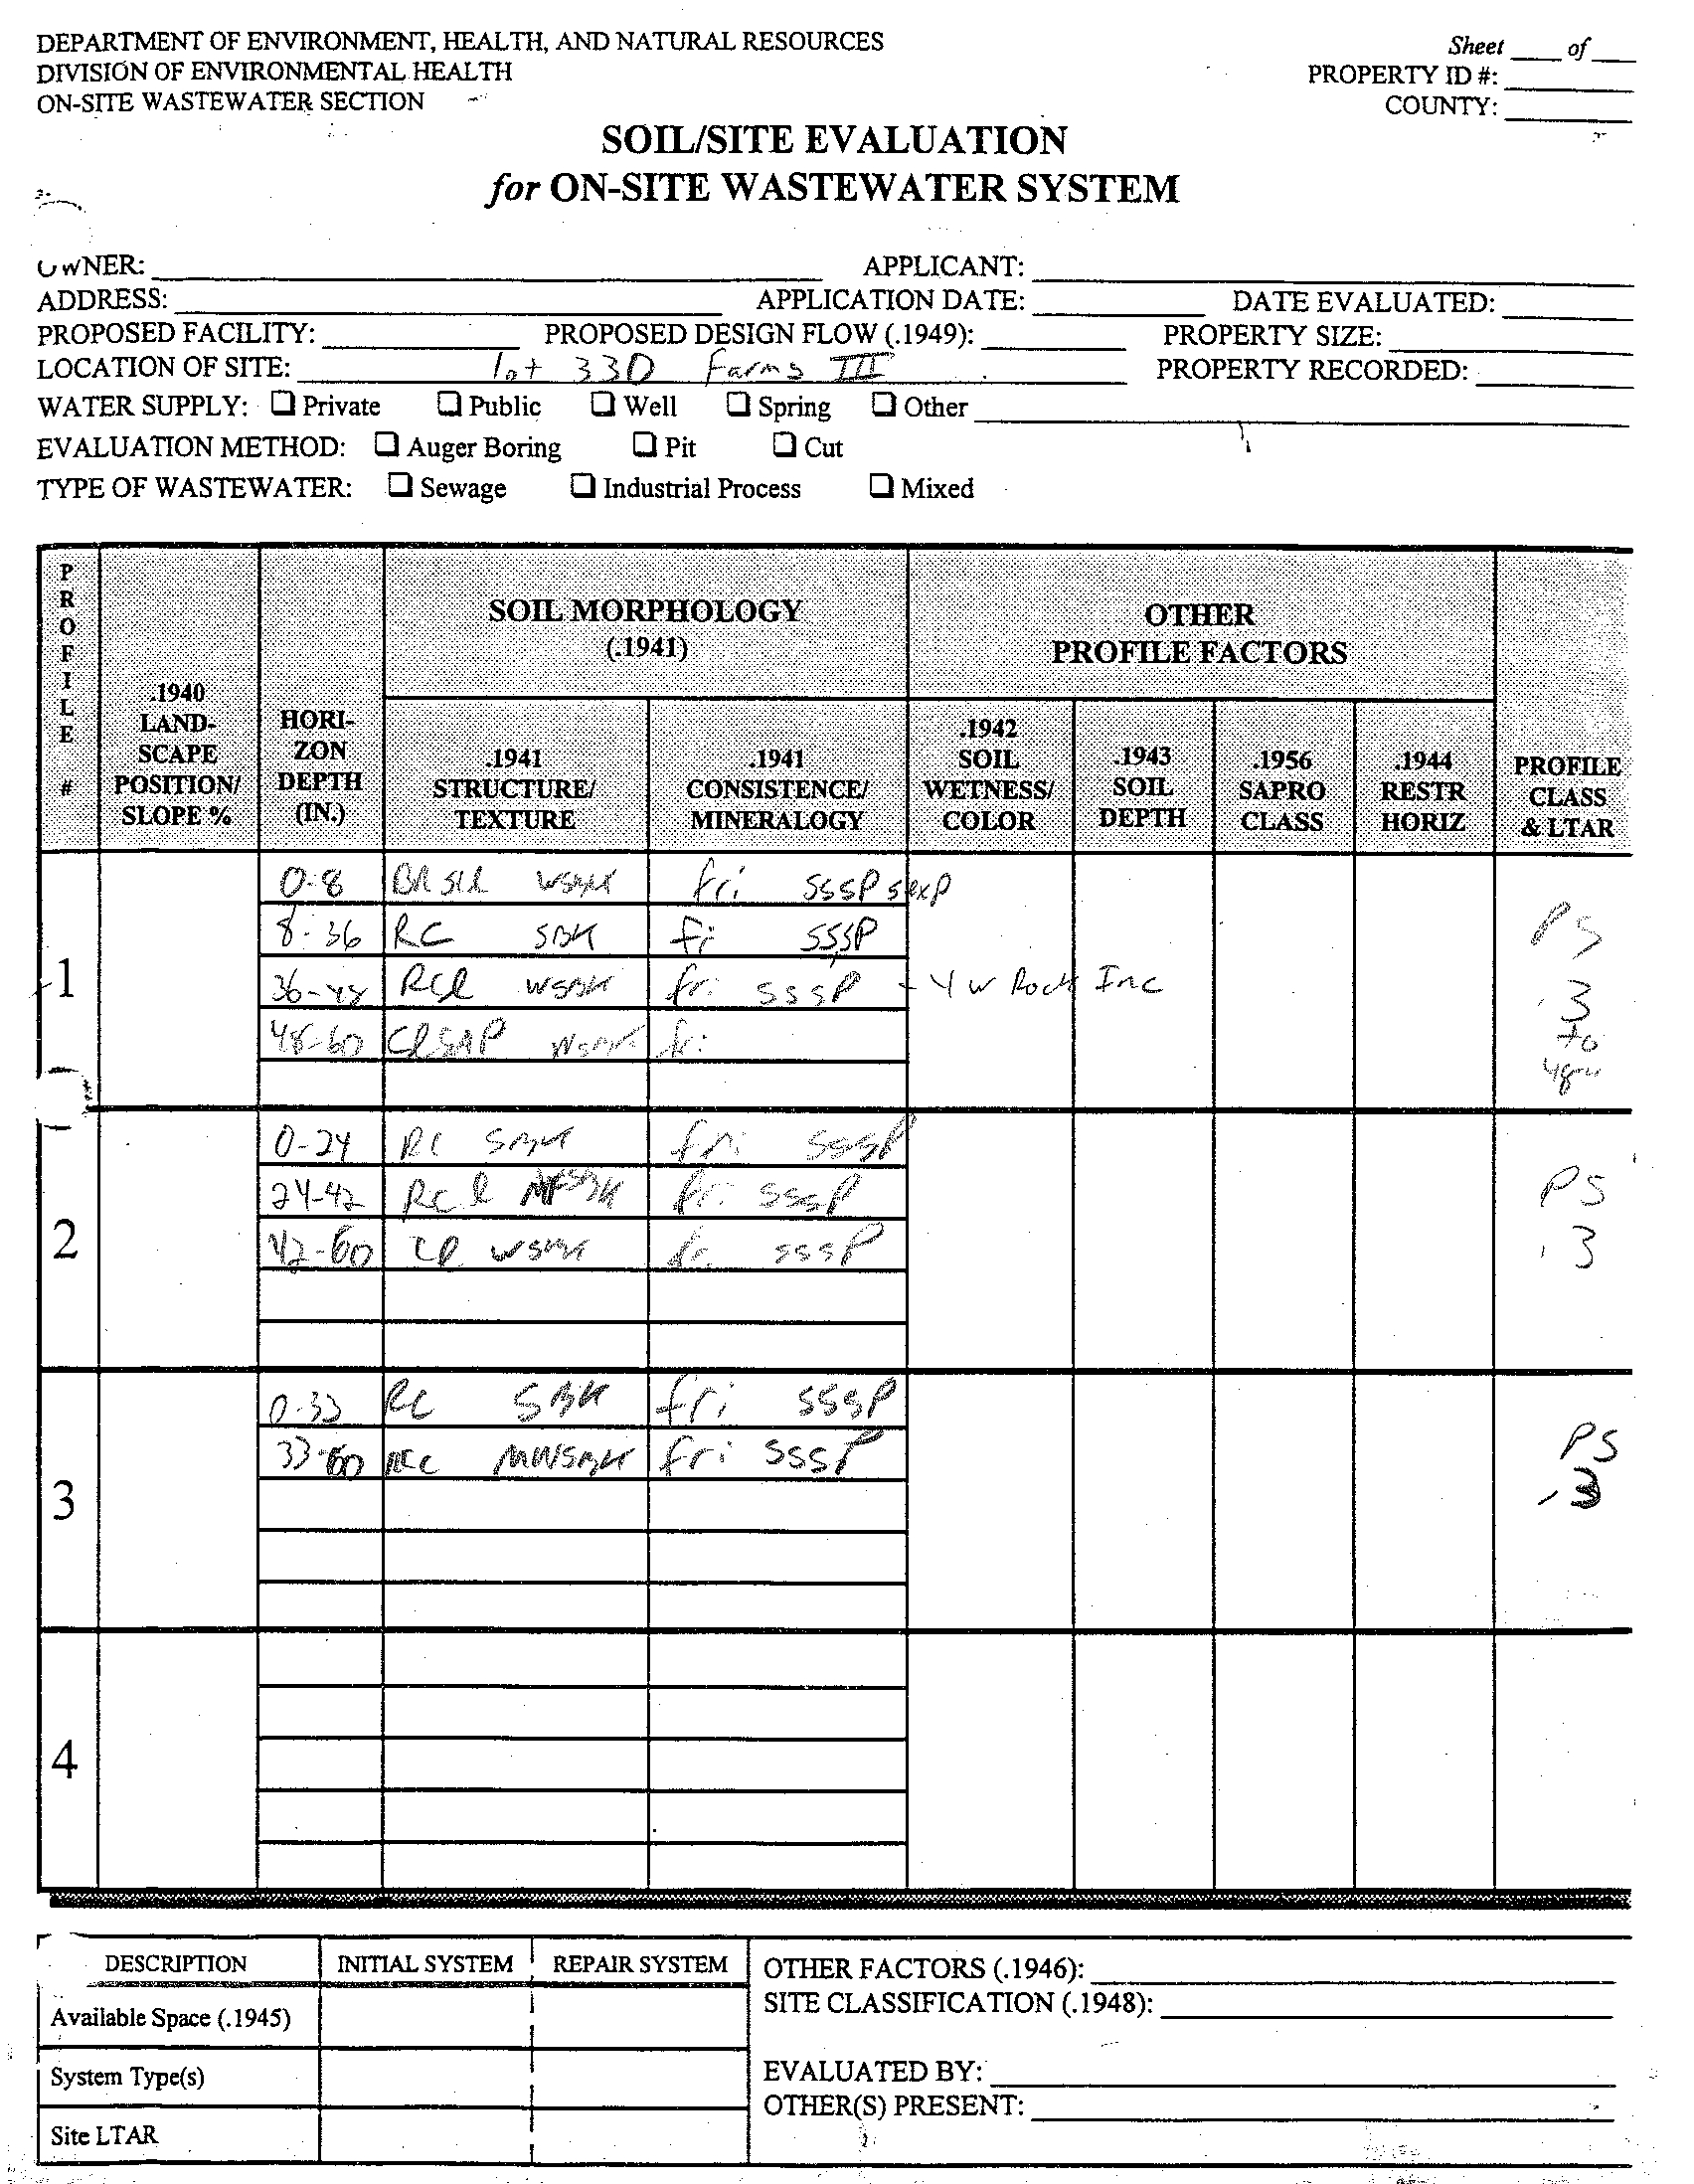 DEPARTMENT OF ENVIRONMENT, HEALTH, AND NATURAL RESOURCES
DIVISION OF ENVIRONMENTAL HEALTH
ON-SITE WASTEWATER SECTION
Sheet ____ of ____
PROPERTY ID #:
COUNTY:
SOIL/SITE EVALUATION
for ON-SITE WASTEWATER SYSTEM
OWNER: APPLICANT:
ADDRESS: APPLICATION DATE: DATE EVALUATED:
PROPOSED FACILITY: PROPOSED DESIGN FLOW (.1949): PROPERTY SIZE:
LOCATION OF SITE: lot 330 Farms III PROPERTY RECORDED:
WATER SUPPLY: ❑ Private ❑ Public ❑ Well ❑ Spring ❑ Other
EVALUATION METHOD: ❑ Auger Boring ❑ Pit ❑ Cut
TYPE OF WASTEWATER: ❑ Sewage ❑ Industrial Process ❑ Mixed
PROFILE #
.1940 LAND-SCAPE POSITION/ SLOPE %
HORI-ZON DEPTH (IN.)
SOIL MORPHOLOGY (.1941)
.1941 STRUCTURE/ TEXTURE
.1941 CONSISTENCE/ MINERALOGY
OTHER PROFILE FACTORS
.1942 SOIL WETNESS/ COLOR
.1943 SOIL DEPTH
.1956 SAPRO CLASS
.1944 RESTR HORIZ
PROFILE CLASS & LTAR
1
0-8 wsbk fri sssp sexp
8-36 RC SBK fi sssp
36-48 RCl wsbk fri sssp - Yw Rock Inc
48-60 ClSAP wsbk fri
PS .3 to 48"
2
0-24 RC SBK fri sssp
24-42 RCl fri sssp
42-60 Cl wsbk fri sssp
PS .3
3
0-33 RC SBK fri sssp
33-60 MWSBK fri sssp
PS .3
4
DESCRIPTION INITIAL SYSTEM REPAIR SYSTEM
Available Space (.1945)
System Type(s)
Site LTAR
OTHER FACTORS (.1946):
SITE CLASSIFICATION (.1948):
EVALUATED BY:
OTHER(S) PRESENT: